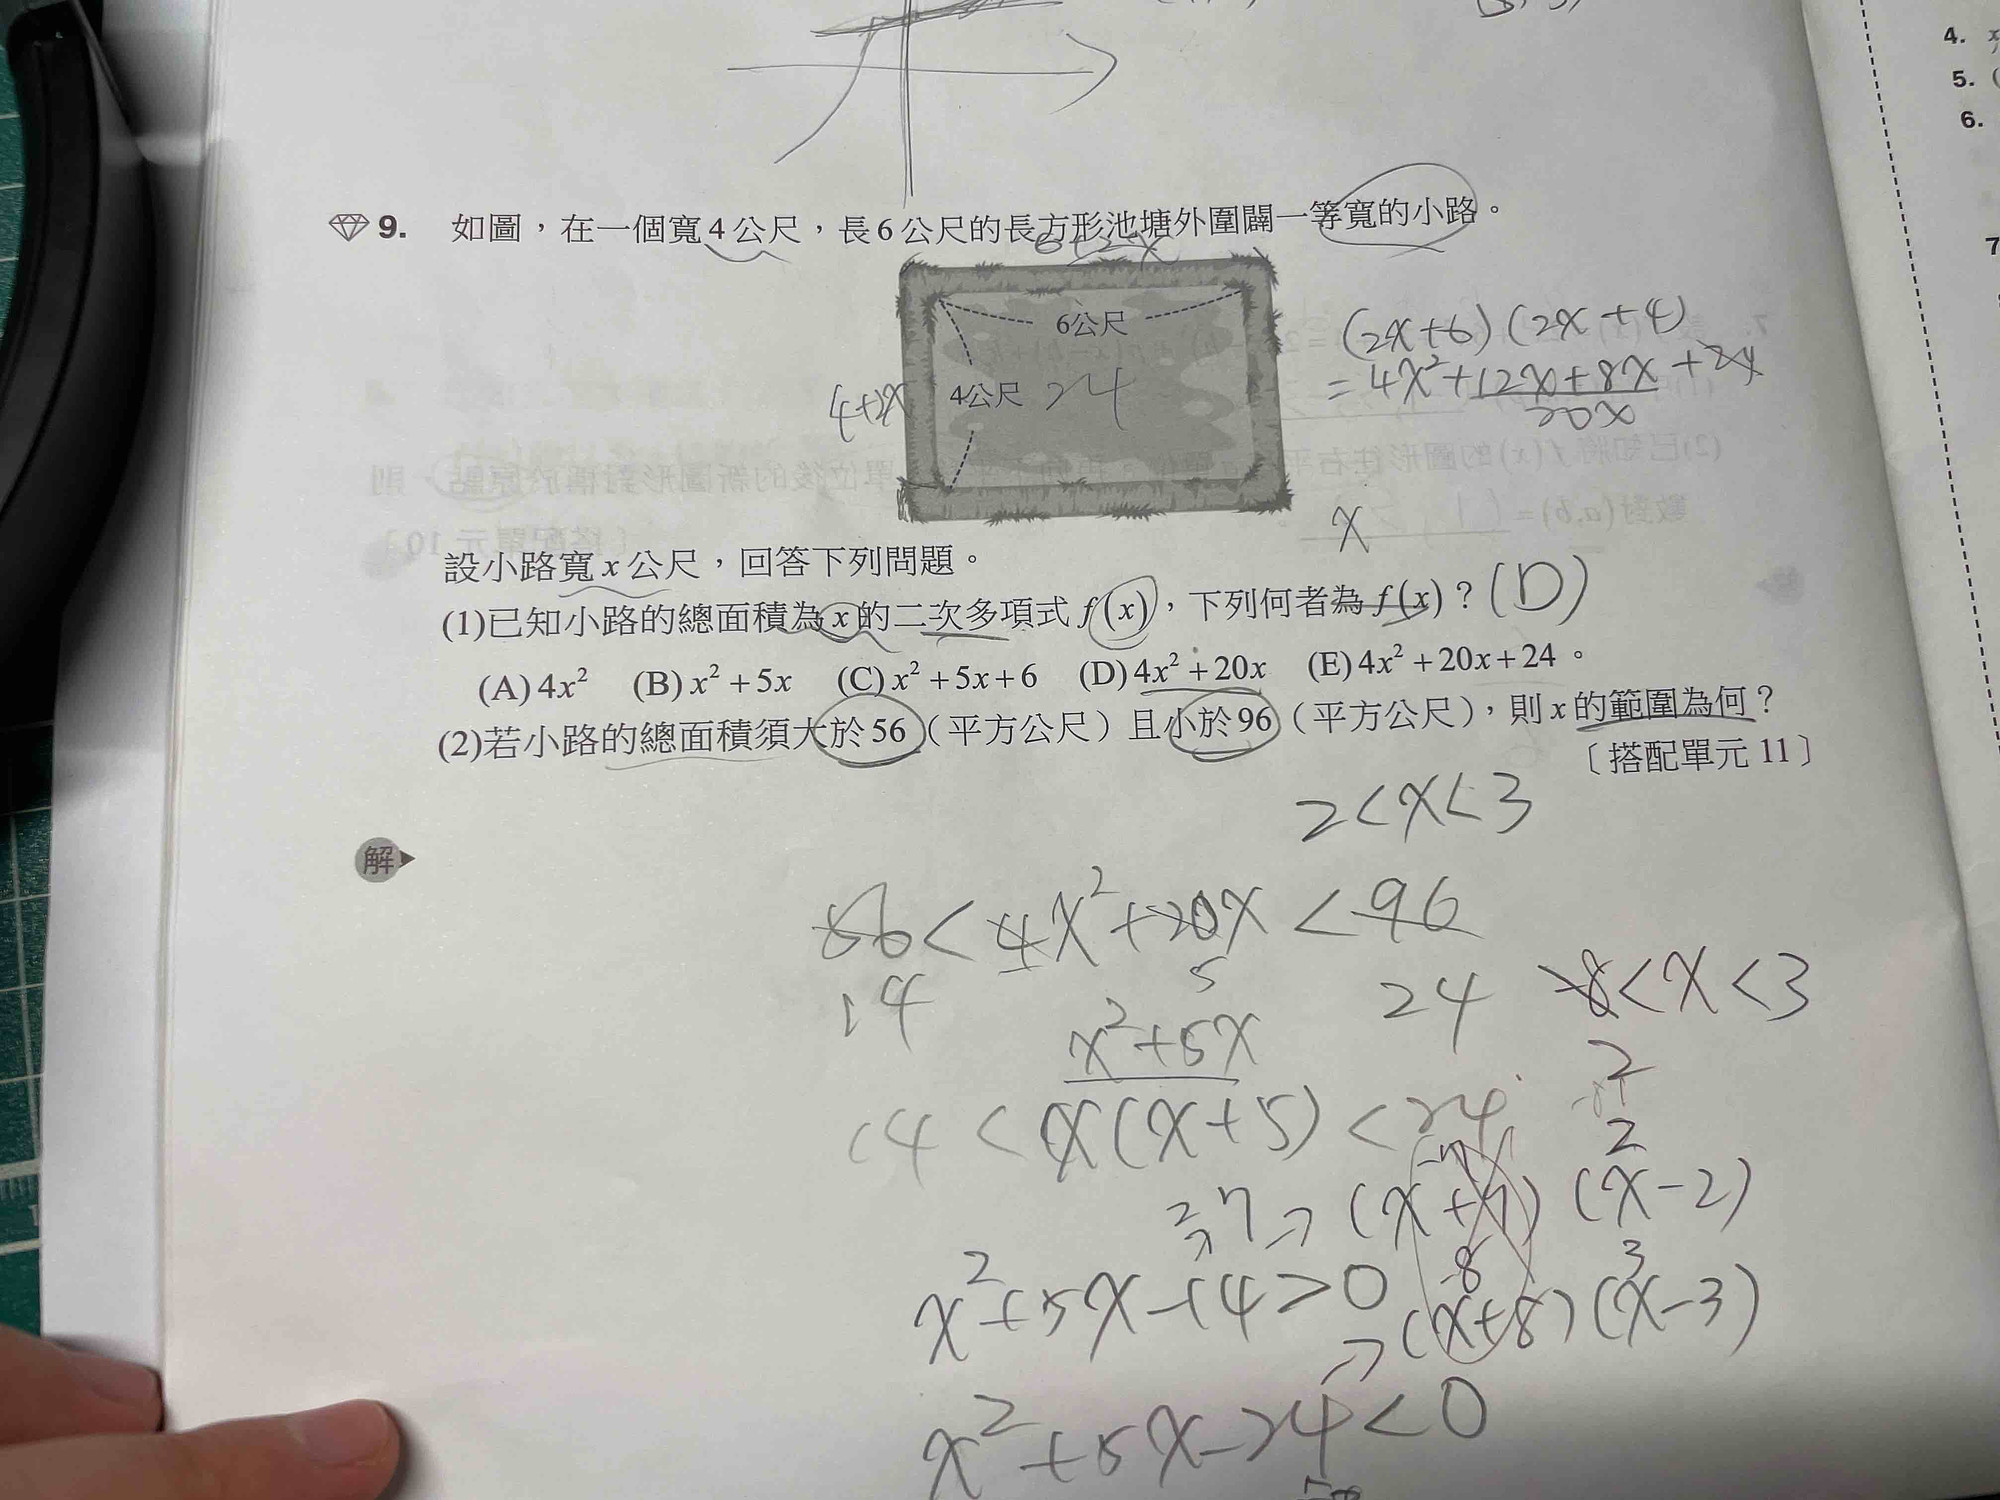 4.
5. (
6.
7
9. 如圖，在一個寬4公尺，長6公尺的長方形池塘外圍闢一等寬的小路。
6+2x
6公尺
4+2x
4公尺 24
(2x+6)(2x+4)
=4x²+12x+8x+24
20x
x
設小路寬x公尺，回答下列問題。
(1)已知小路的總面積為x的二次多項式f(x)，下列何者為f(x)？(D)
(A)4x² (B)x²+5x (C)x²+5x+6 (D)4x²+20x (E)4x²+20x+24。
(2)若小路的總面積須大於56（平方公尺）且小於96（平方公尺），則x的範圍為何？
〔搭配單元11〕
2<x<3
解
56<4x²+20x<96
14 5 24
-8<x<3
x²+5x
2
14<x(x+5)<24
2
-7
2,7→(x+7)(x-2)
x²+5x-14>0
-8 3
→(x+8)(x-3)
x²+5x-24<0